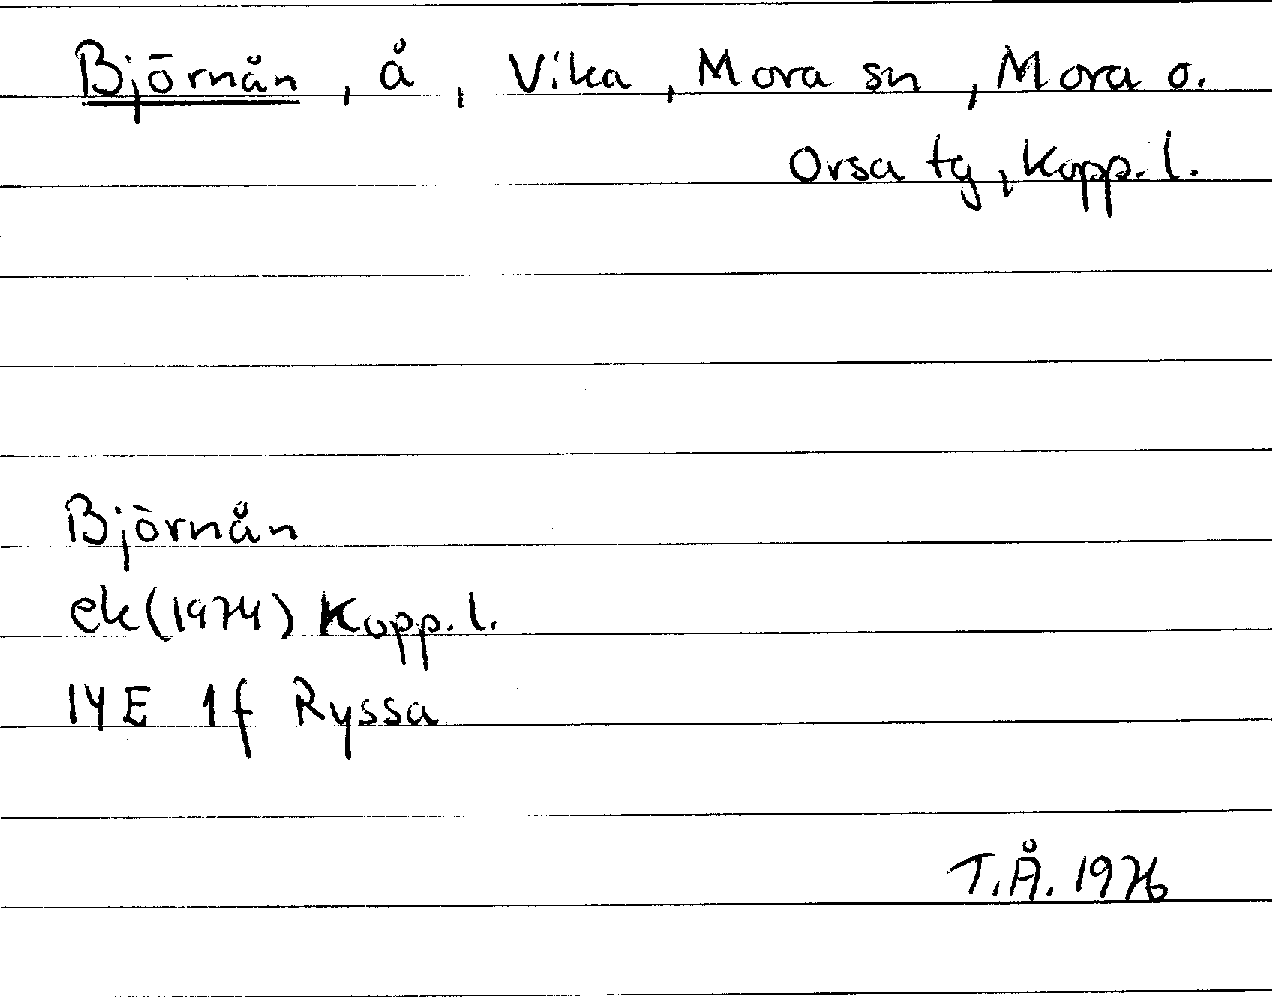 Björnån, å, Vika, Mora sn, Mora o.
Orsa tg, Kopp. l.
Björnån
ek (1974) Kopp. l.
14E 1f Ryssa
T.Å. 1976